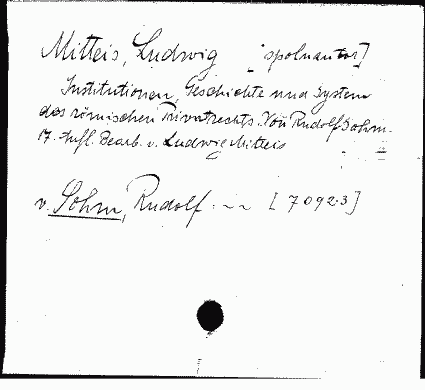 Mitteis, Ludwig [spoluautor]
Institutionen, Geschichte und System
des römischen Privatrechts. Von Rudolf Sohm.
17. Aufl. Bearb. v. Ludwig Mitteis
v. Sohm, Rudolf. -- [70923]